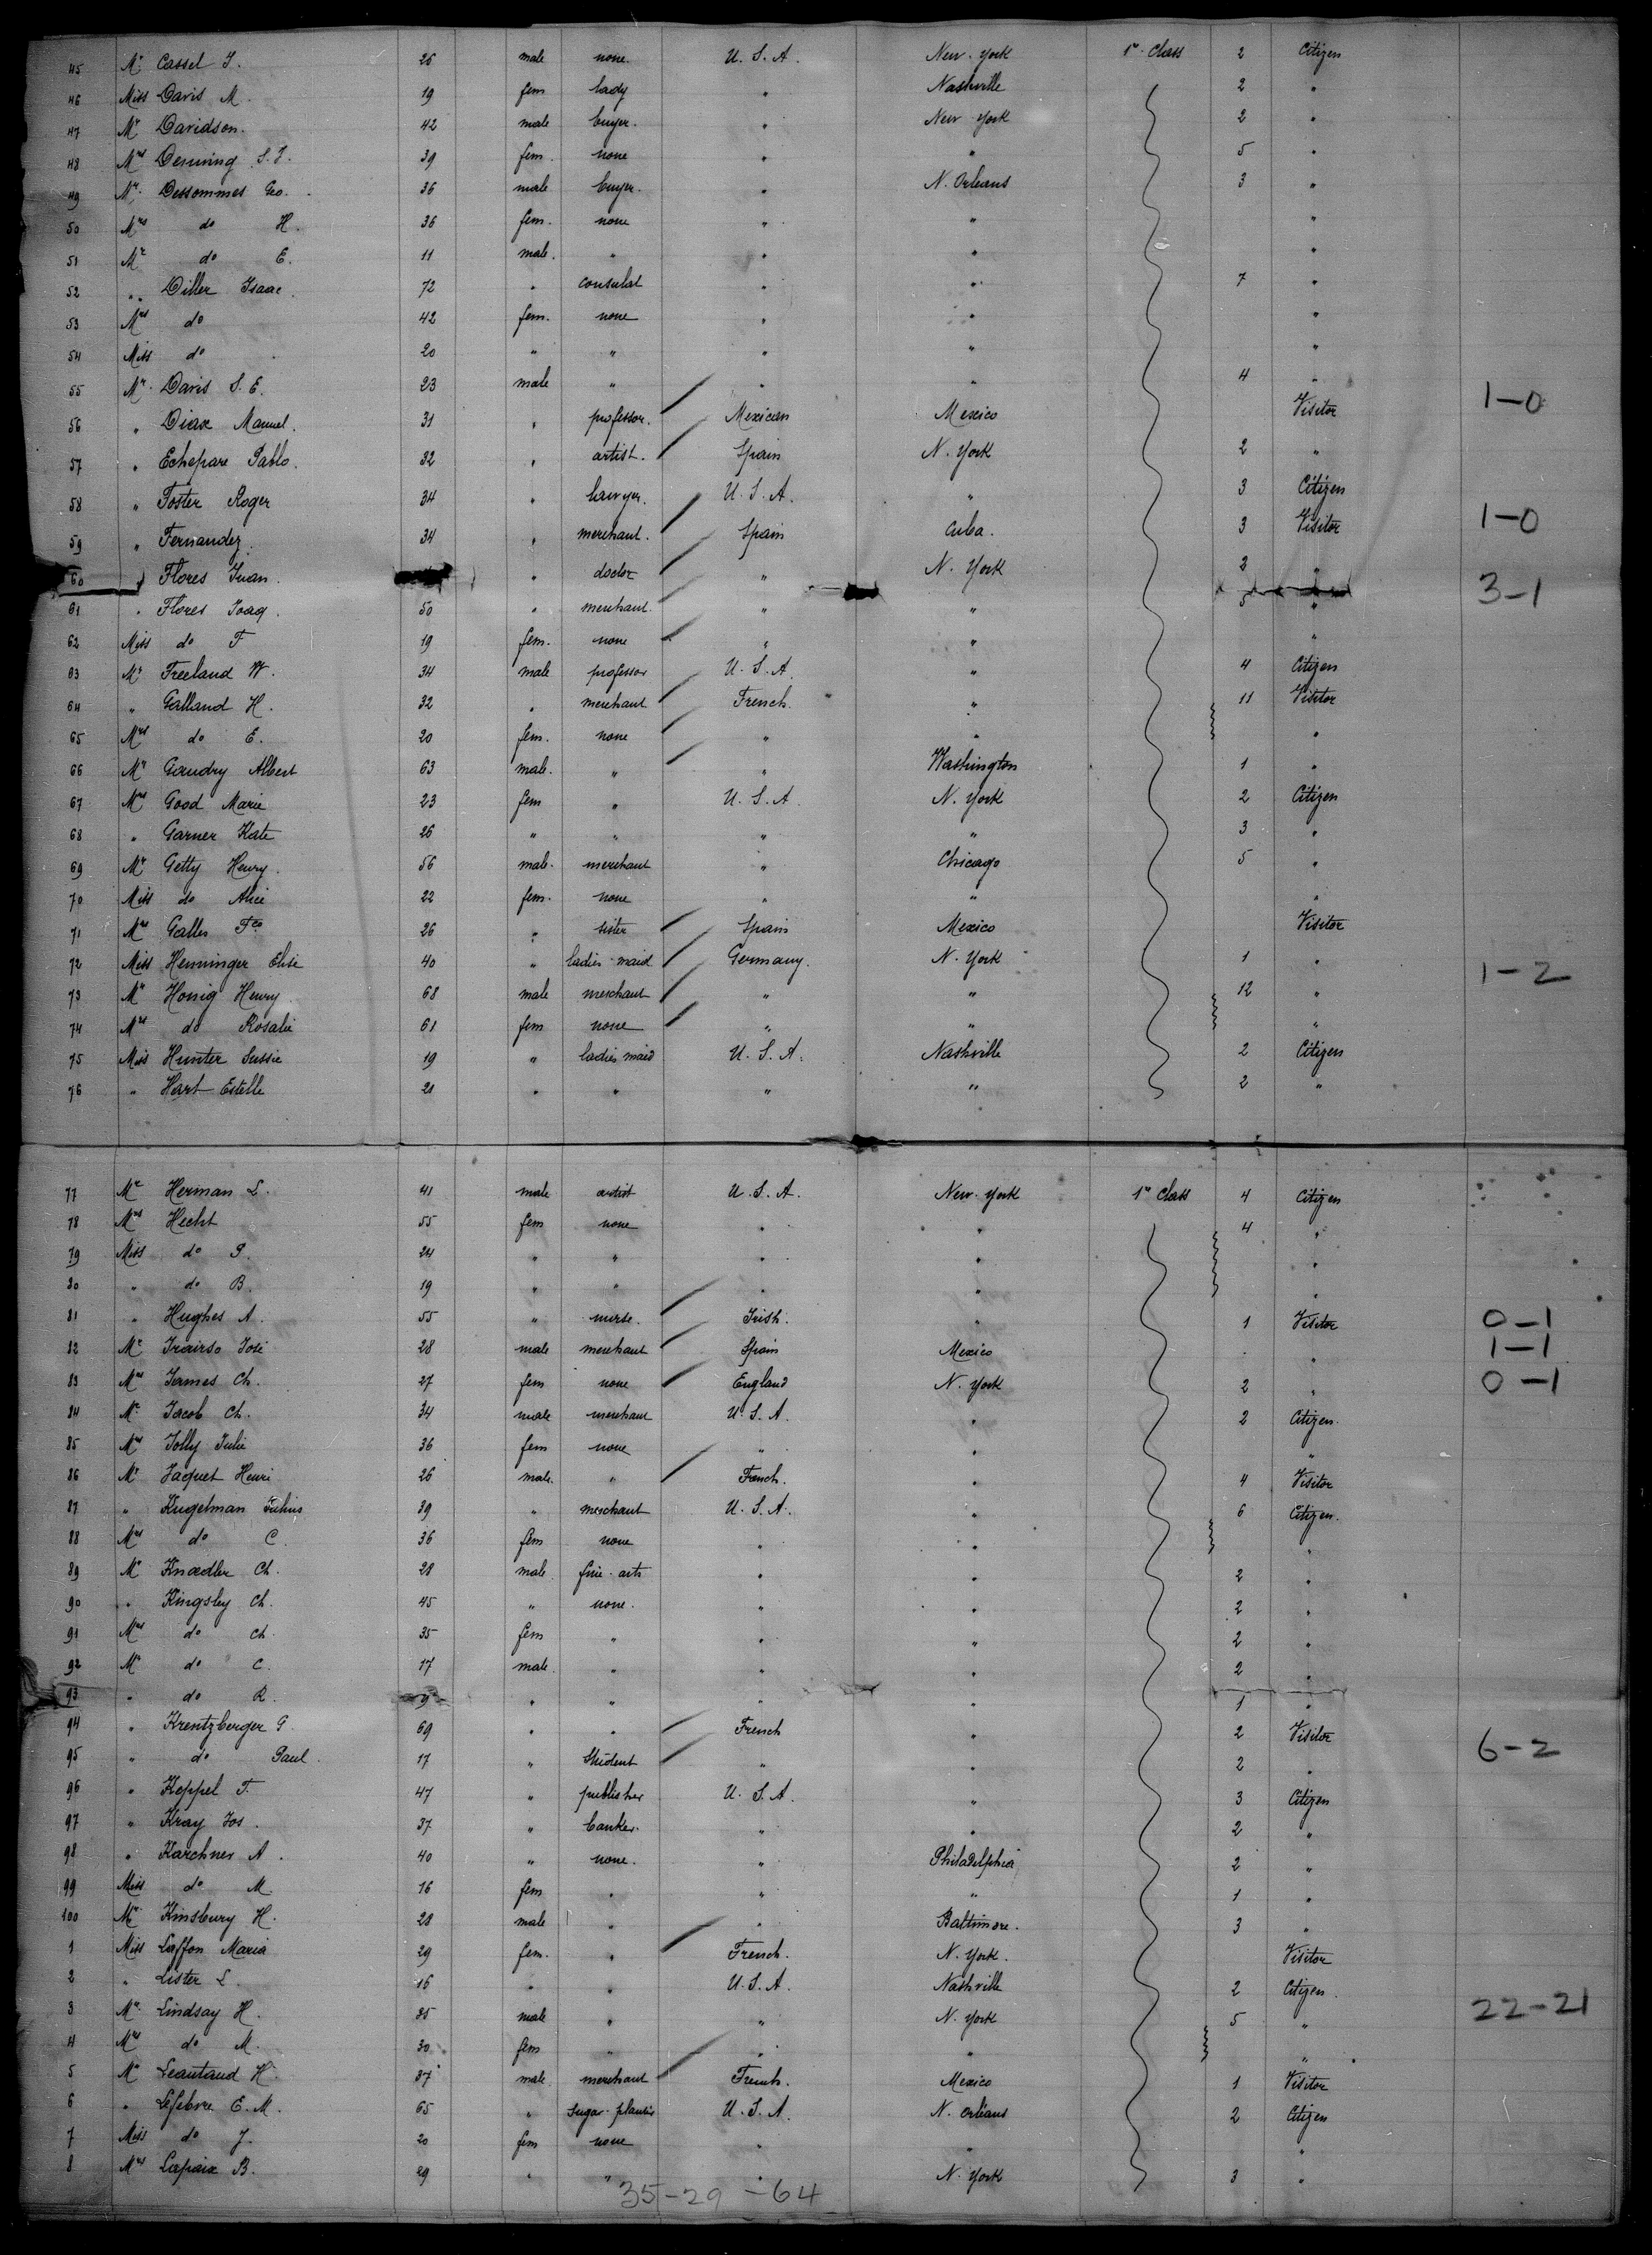 45 Mr Cassel J. 26 male none. U. S. A. New-York 1st Class 2 Citizen
46 Miss Davis M. 19 fem lady " Nashville 2 "
47 Mr Davidson. 42 male buyer. " New York 2 "
48 Mrs 39 fem. none " " 5 "
49 Mr. Dessommes Geo. 36 male buyer. " N. Orleans 3 "
50 Mrs do H. 36 fem. none " " "
51 Mr do E. 11 male. " " " "
52 " Diller Isaac. 72 " consulat " " 7 "
53 Mrs do 42 fem. none " " "
54 Miss do 20 " " " " "
55 Mr. Davis S. E. 23 male " " " 4 "
56 " Diaz Manuel. 31 " professor. Mexican Mexico Visitor 1-0
57 " Echepare Pablo. 32 " artist. Spain N. York 2 "
58 " Foster Roger 34 " lawyer. U. S. A. " 3 Citizen
59 " Fernandez. 34 " merchant. Spain Cuba. 3 Visitor 1-0
60 " Flores Juan. " doctor " N. York "
61 " Flores Joaq. 50 " merchant. " " 5 " 3-1
62 Miss do F 19 fem. none " " "
63 Mr Freeland W. 34 male professor U. S. A. " 4 Citizen
64 " Galland H. 32 " merchant French. " 11 Visitor
65 Mrs do E. 20 fem. none " " "
66 Mr Gaudry Albert 63 male. " " Washington 1 "
67 Mrs Good Marie 23 fem " U. S. A. N. York 2 Citizen
68 " Garner Kate 26 " " " " 3 "
69 Mr Getty Henry. 56 male. merchant " Chicago 5 "
70 Miss do Alice 22 fem. none " " "
71 Mrs Galles Fca 26 " sister Spain Mexico Visitor
72 Miss Henninger Elise 40 " ladies-maid Germany. N. York 1 " 1-2
73 Mr Honig Henry 68 male merchant " " 12 "
74 Mrs do Rosalie 61 fem none " " "
75 Miss Hunter Sussie 19 " ladies maid U. S. A. Nashville 2 Citizen
76 " Hart Estelle 21 " " " " 2 "
77 Mr Herman L. 41 male artist U. S. A. New-York 1st Class 4 Citizen
78 Mrs Hecht 55 fem none " " 4 "
79 Miss do P. 24 " " " " "
80 " do B. 19 " " " " "
81 " Hughes A. 55 " nurse. Irish. " 1 Visitor 0-1
82 Mr José 28 male merchant Spain Mexico " 1-1
83 Mrs James Ch. 27 fem none England N. York 2 " 0-1
84 Mr Jacob Ch. 34 male merchant U. S. A. " 2 Citizen.
85 Mrs Jolly Julie 36 fem none " " "
86 Mr Jaquet Henri 26 male. " French. " 4 Visitor
87 " Kugelman Julius 39 " merchant U. S. A. " 6 Citizen.
88 Mrs do C. 36 fem none " " "
89 Mr Knoedler Ch. 28 male fine-arts " " 2 "
90 " Kingsley Ch. 45 " none. " " 2 "
91 Mrs do Ch. 35 fem " " " 2 "
92 Mr do C. 17 male. " " " 2 "
93 " do R. 9 " " " " 1 "
94 " Krentzberger G. 69 " " French " 2 Visitor
95 " do Paul. 17 " Student " " 2 " 6-2
96 " Keppel F. 47 " publisher U. S. A. " 3 Citizen
97 " Kray Jos. 37 " banker. " " 2 "
98 " Karchner A. 40 " none. " Philadelphia 2 "
99 Miss do M. 16 fem " " " 1 "
100 Mr Kinsbury H. 28 male " " Baltimore. 3 "
1 Miss Laffon Maria 29 fem. " French. N. York. Visitor
2 " Lister L. 16 " " U. S. A. Nashville 2 Citizen.
3 Mr Lindsay H. 35 male " " N. York 5 " 22-21
4 Mrs do M. 30 fem " " " "
5 Mr Leautaud H. 37 male merchant French. Mexico 1 Visitor
6 " Lefebvre E. M. 65 " Sugar-planter U. S. A. N. Orléans 2 Citizen
7 Miss do J. 20 fem none " " "
8 Mrs Lapaix B. 29 " " " N. York 3 "
35-29-64